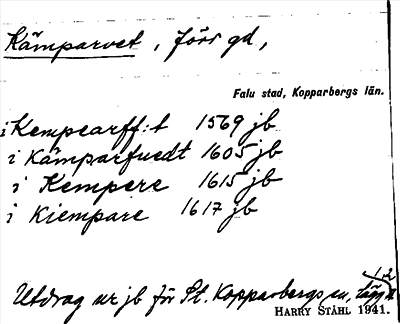 Kämparvet, förs gd,
Falu stad, Kopparbergs län.
i Kempearff:t 1569 jb
i Kämparfuedt 1605 jb
i Kempere 1615 jb
i Kiempare 1617 jb
1,2
Utdrag ur jb för St. Kopparbergs sn,
HARRY STÅHL 1941.